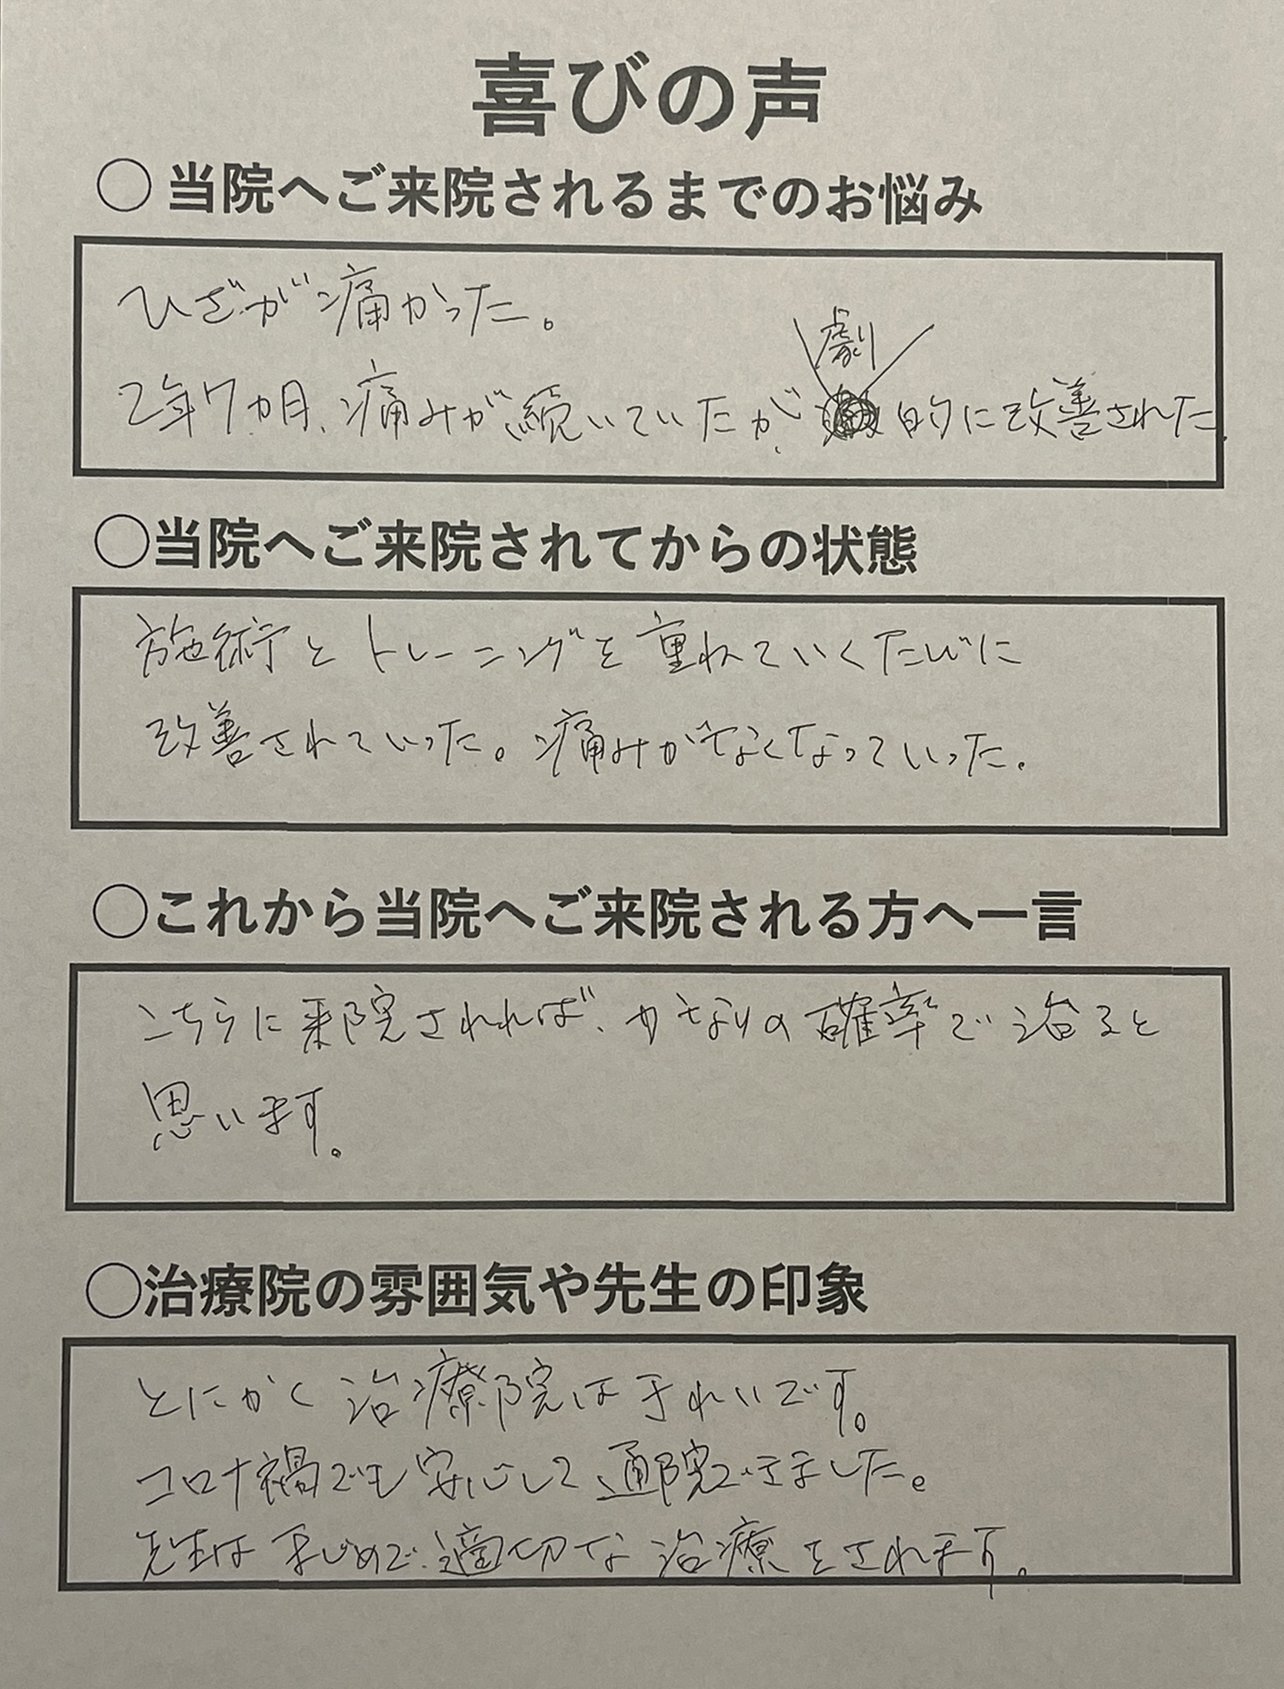 喜びの声
○ 当院へご来院されるまでのお悩み
ひざが痛かった。
2年7カ月、痛みが続いていたが、劇的に改善された.
○当院へご来院されてからの状態
施術とトレーニングを重ねていくたびに
改善されていった。痛みがなくなっていった.
○これから当院へご来院される方へ一言
こちらに来院されれば、かなりの確率で治ると
思います。
○治療院の雰囲気や先生の印象
とにかく治療院はきれいです。
コロナ禍でも安心して通院できました。
先生はまじめで、適切な治療をされます。